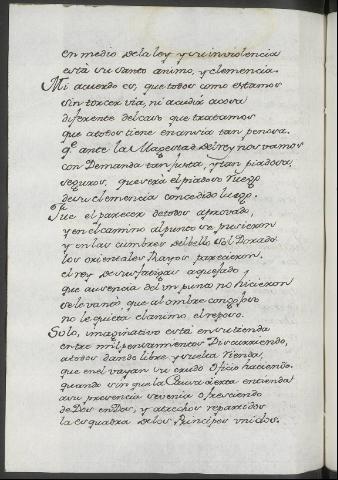 en medio de la ley y su inviolencia
está su santo animo, y clemencia.
Mi acuerdo es, que todos como estamos
sin torcer via, ni acudir a cosa
diferente del caso que tratamos
que a todos tiene en ansia tan penosa.
q.e ante la Magestad del rey nos vamos
con Demanda tan justa, y tan piadosa,
seguros, que será el piadoso ruego
de su clemencia concedido luego.
Fue el parecer de todos aprovado,
y en el camino al punto se pusieron
y en las cumbres del bello sol Dorado
los orientales Rayos parecieron.
el rey de sus fatigas aquejado
que ausencia del un punto no hicieron
se levantó, que al ombre congojoso
no le quieta el animo, el reposo.
Solo, imaginativo está en su tienda
entre mil pensamientos Discurriendo,
a todos dando libre y suelta rienda,
que en el vayan su crudo oficio haciendo.
quando sin que la Causa cierta entienda
a su presencia se venia ofreciendo
de Dos en Dos, y a trechos repartidos
la esquadra de los Principes unidos.